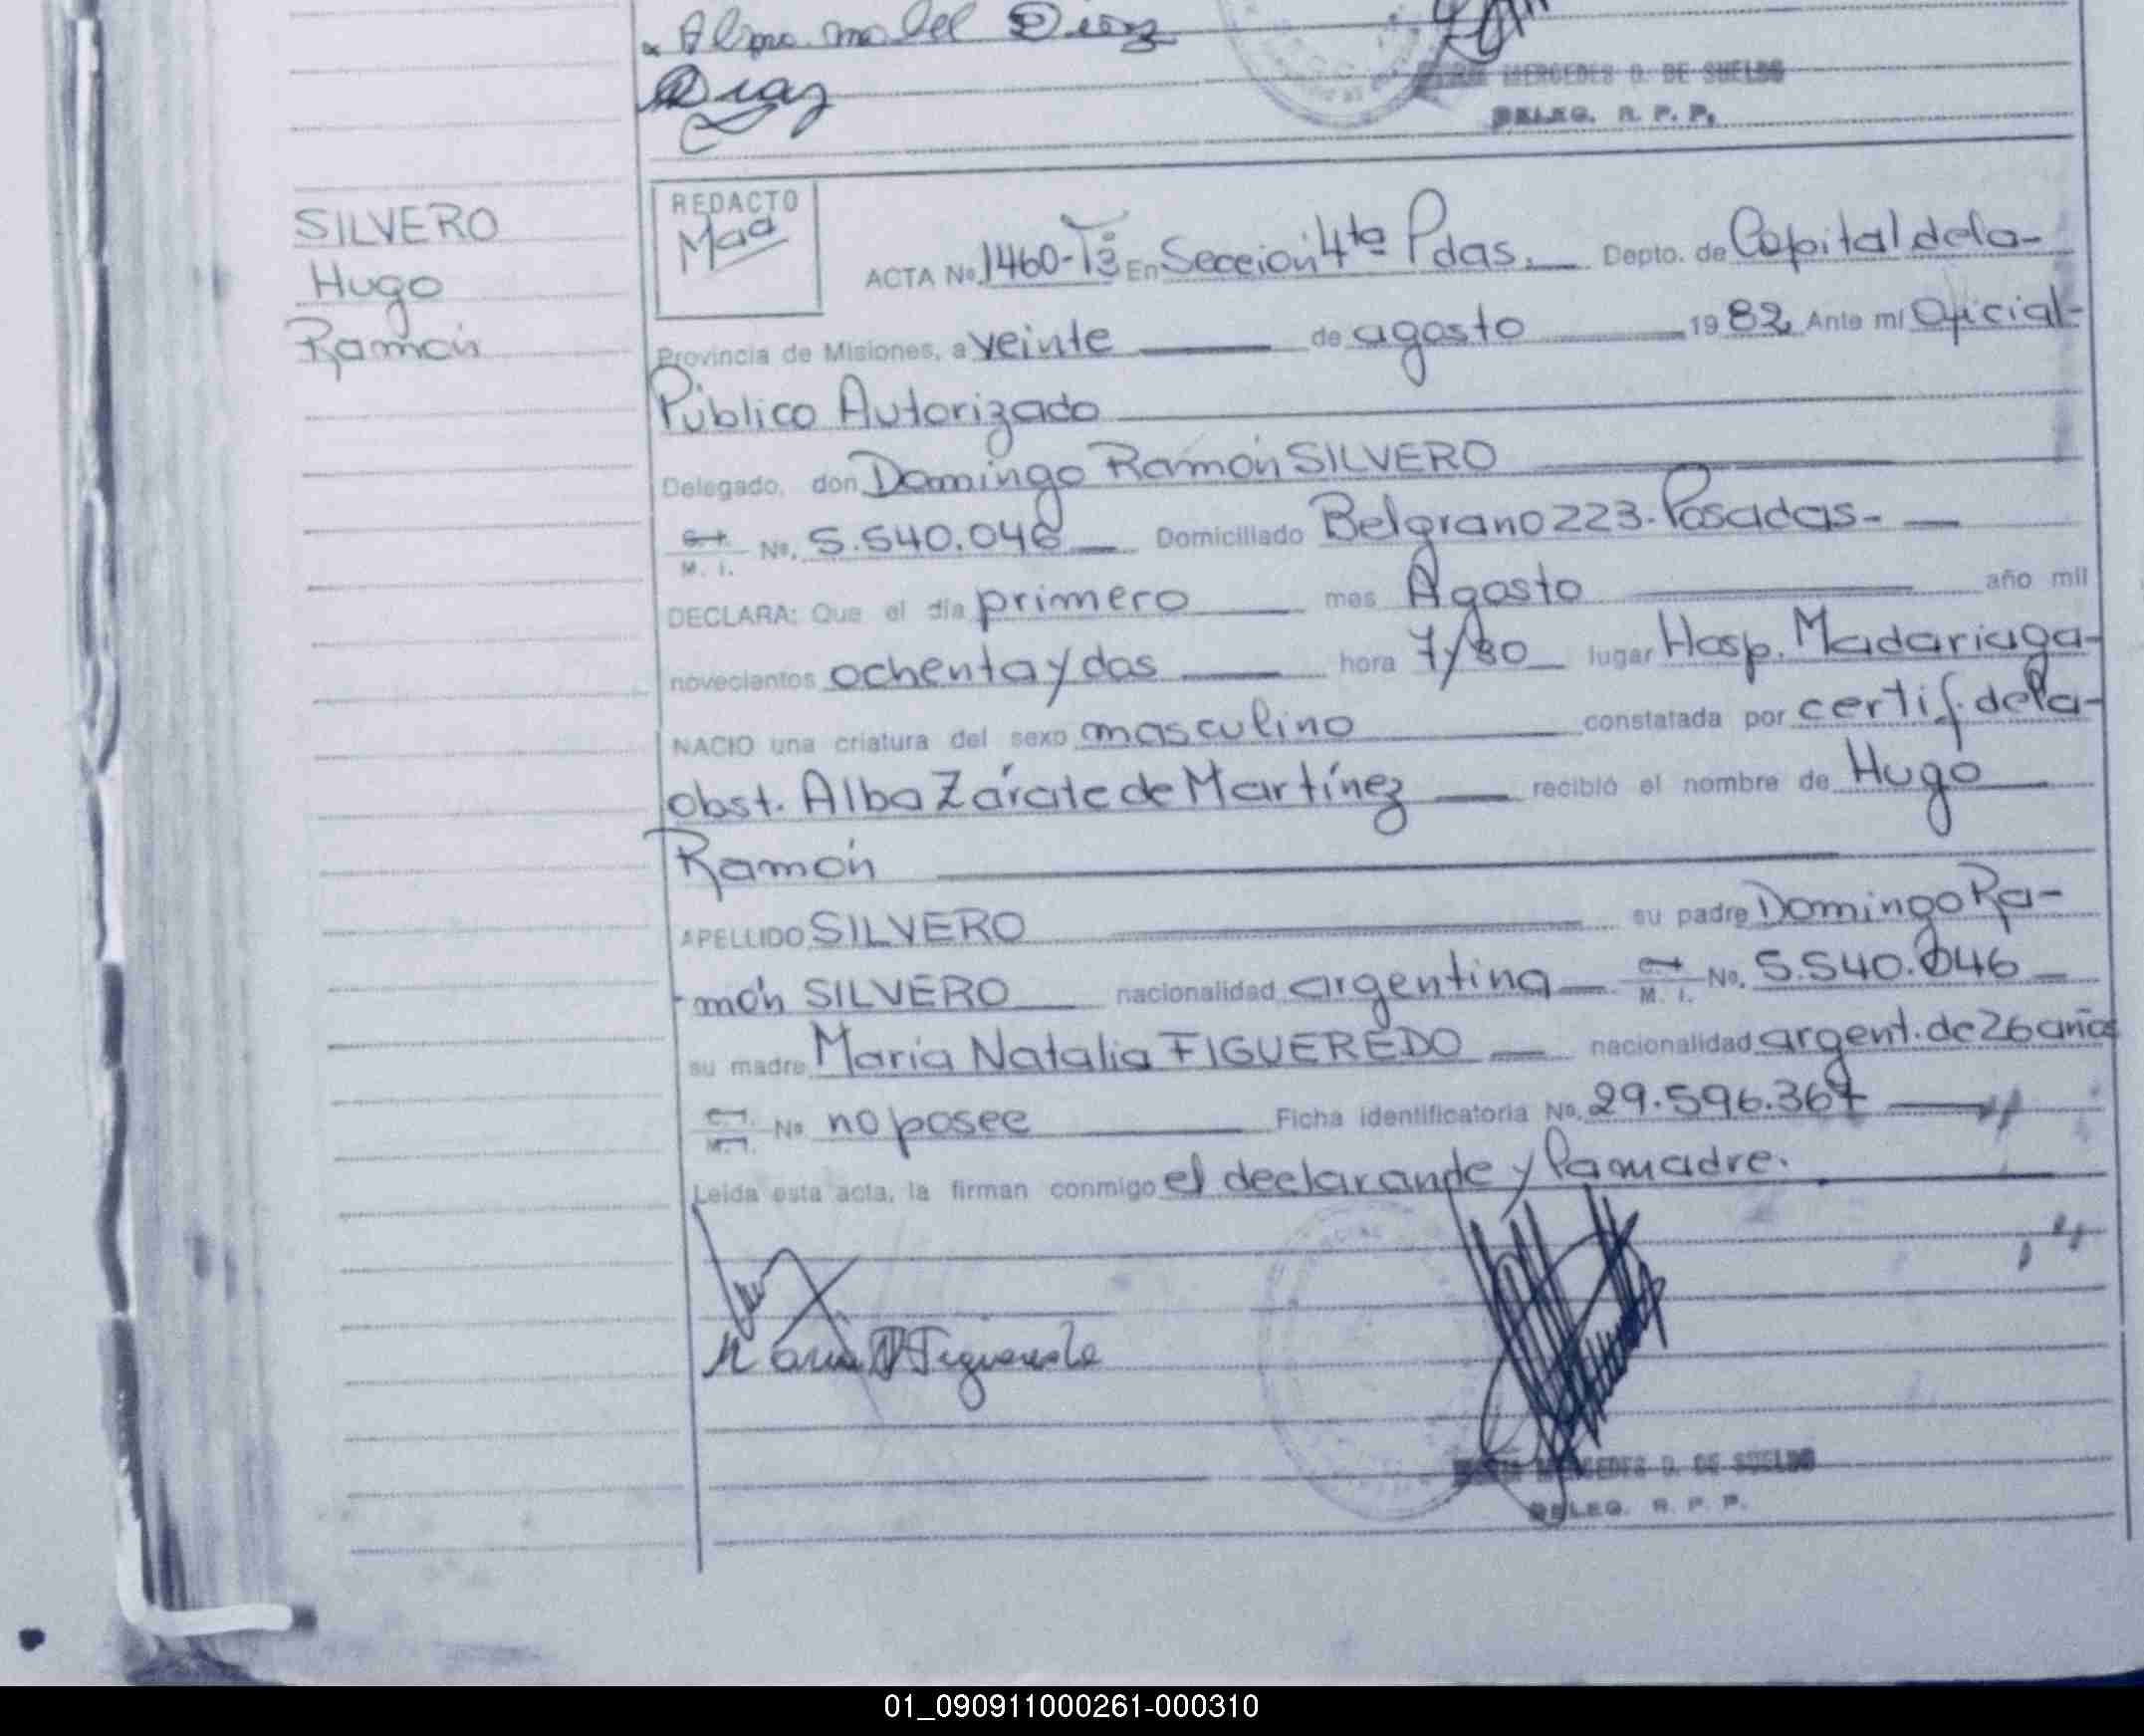 Alma mabel Diaz
Diaz
MERCEDES D. DE SUELDO
DELEG. R. P. P.
SILVERO
Hugo
Ramón
REDACTO
Mad
ACTA Nº 1460-Tº3 En Sección 4ta Pdas. Depto. de Capital de la-
Provincia de Misiones, a veinte de agosto 19 82 Ante mí Oficial-
Público Autorizado
Delegado, don Domingo Ramón SILVERO
M. I. Nº. 5.540.046 Domiciliado Belgrano 223-Posadas-
DECLARA: Que el día primero mes Agosto año mil
novecientos ochenta y dos hora 7/30 lugar Hosp. Madariaga-
NACIO una criatura del sexo masculino constatada por certif. de la-
obst. Alba Zárate de Martínez recibió el nombre de Hugo
Ramón
APELLIDO SILVERO su padre Domingo Ra-
-món SILVERO nacionalidad argentina M. I. Nº. 5.540.046
su madre María Natalia FIGUEREDO nacionalidad argent. de 26 años
M. I. Nº no posee Ficha identificatoria Nº. 29.596.367
Leída esta acta, la firman conmigo el declarande y la madre.
Maria N Figueredo
MERCEDES D. DE SUELDO
DELEG. R. P. P.
01_090911000261-000310